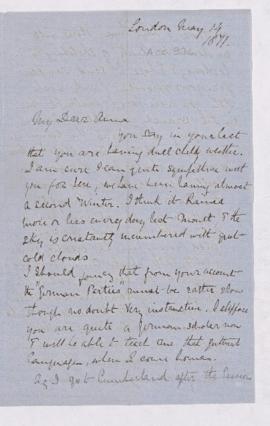 London May 14
1879.
My Dear Anna
you say in your last
that you are having dull chill weather.
I am sure I can quite sympathise with
you for here, we have been having almost
a second Winter. I think it Rained
more or less every day last month & the
sky is constantly encumbered with great
cold clouds.
I should judge that from your account
the "German Parties" must be rather slow
though no doubt very instructive. I suppose
you are quite a German scholar now
& will be able to teach me that guttural
language, when I come home.
As I got Cumberland after the